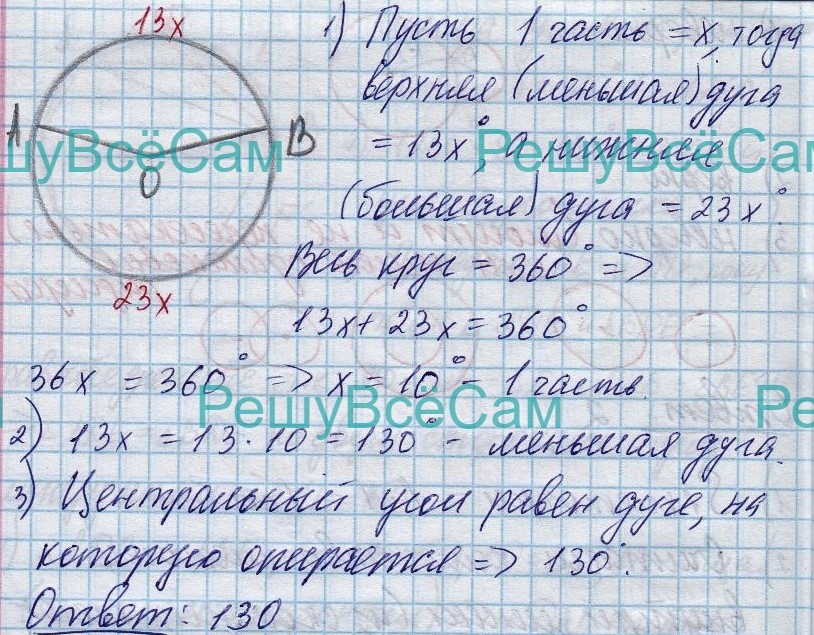 13x
1) Пусть 1 часть = x, тогда
верхняя (меньшая) дуга
A B
= 13x°, а нижняя
РешуВсёСам РешуВсёСам
O
(большая) дуга = 23x°
Весь круг = 360° =>
23x
13x + 23x = 360°
36x = 360° => x = 10° - 1 часть.
РешуВсёСам Ре
2) 13x = 13 · 10 = 130° - меньшая дуга.
3) Центральный угол равен дуге, на
которую опирается => 130°.
Ответ: 130